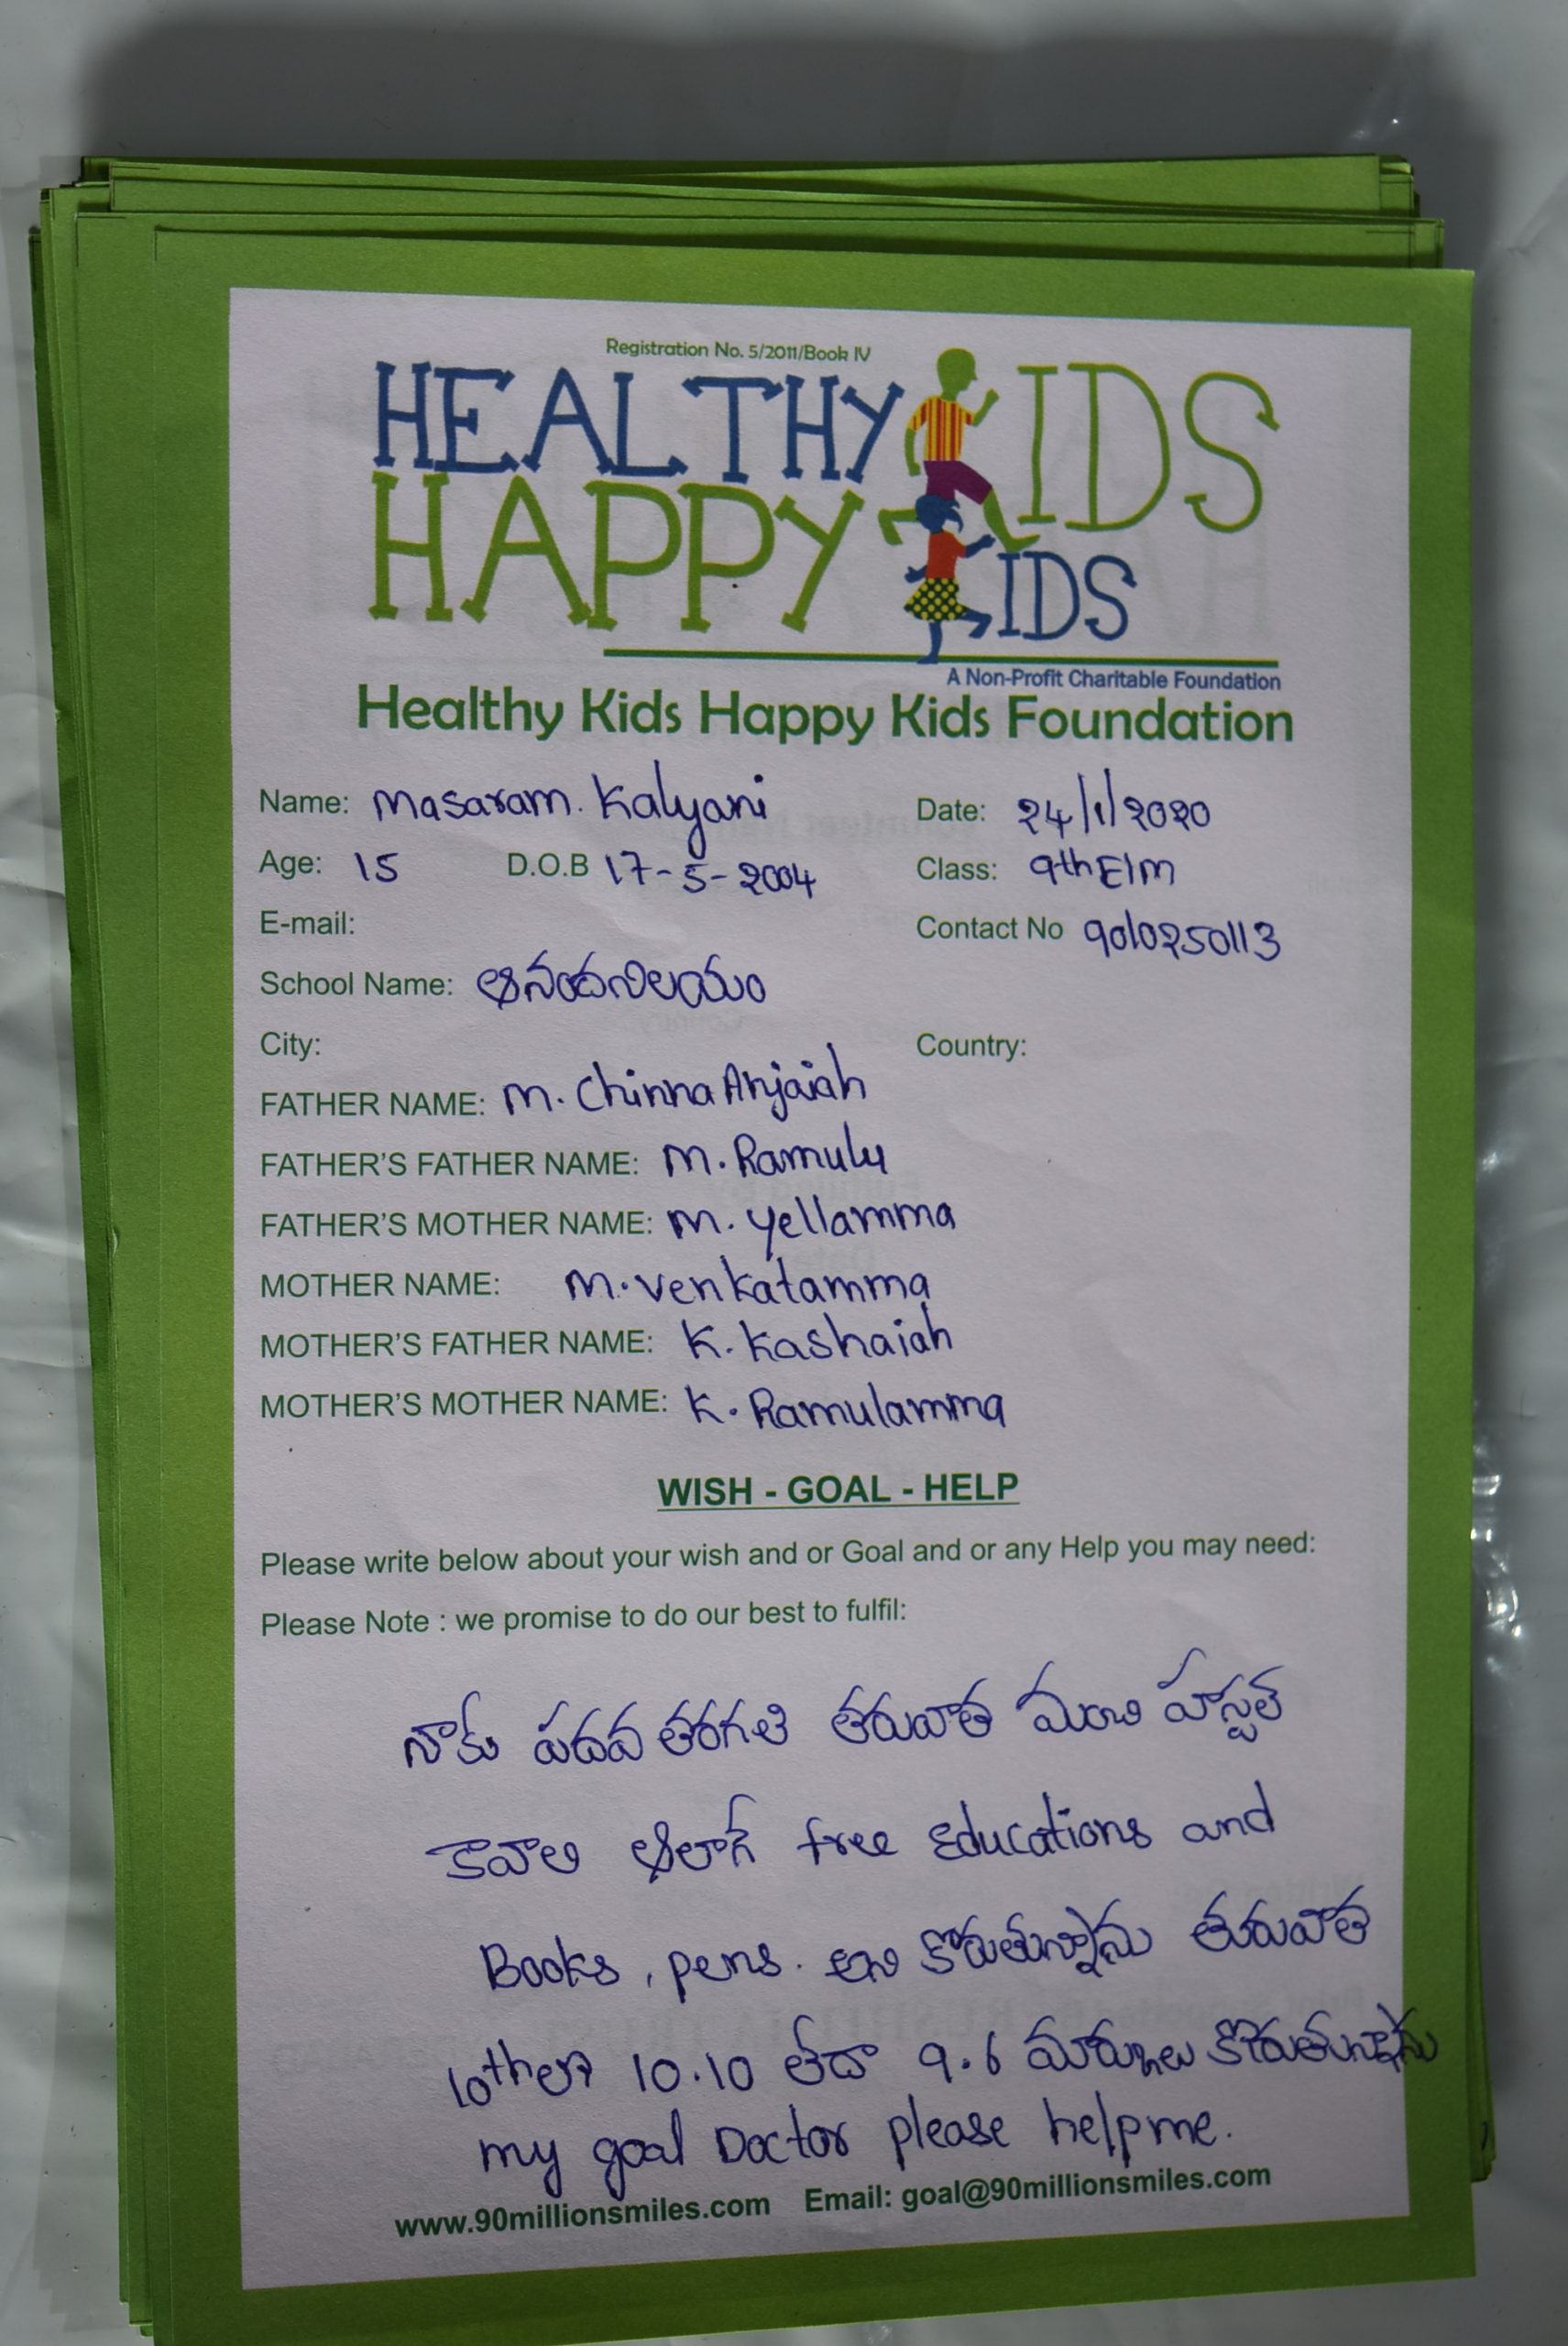 Registration No. 5/2011/Book IV
HEALTHY KIDS
HAPPY KIDS
A Non-Profit Charitable Foundation
Healthy Kids Happy Kids Foundation
Name: Masaram. Kalyani Date: 24/1/2020
Age: 15 D.O.B 17-5-2004 Class: 9th E/m
E-mail: Contact No 9010250113
School Name: ఆనందనిలయం
City: Country:
FATHER NAME: M. Chinna Anjaiah
FATHER'S FATHER NAME: M. Ramulu
FATHER'S MOTHER NAME: M. yellamma
MOTHER NAME: M. venkatamma
MOTHER'S FATHER NAME: K. Kashaiah
MOTHER'S MOTHER NAME: K. Ramulamma
WISH - GOAL - HELP
Please write below about your wish and or Goal and or any Help you may need:
Please Note : we promise to do our best to fulfil:
నాకు పదవ తరగతి తరువాత మంచి హాస్టల్
కావాలి అలాగే free Educations and
Books, pens. అని కోరుతున్నాను తరువాత
10thలో 10.10 లేదా 9.6 మార్కులు కోరుతున్నాను
my goal Doctor please help me.
www.90millionsmiles.com Email: goal@90millionsmiles.com